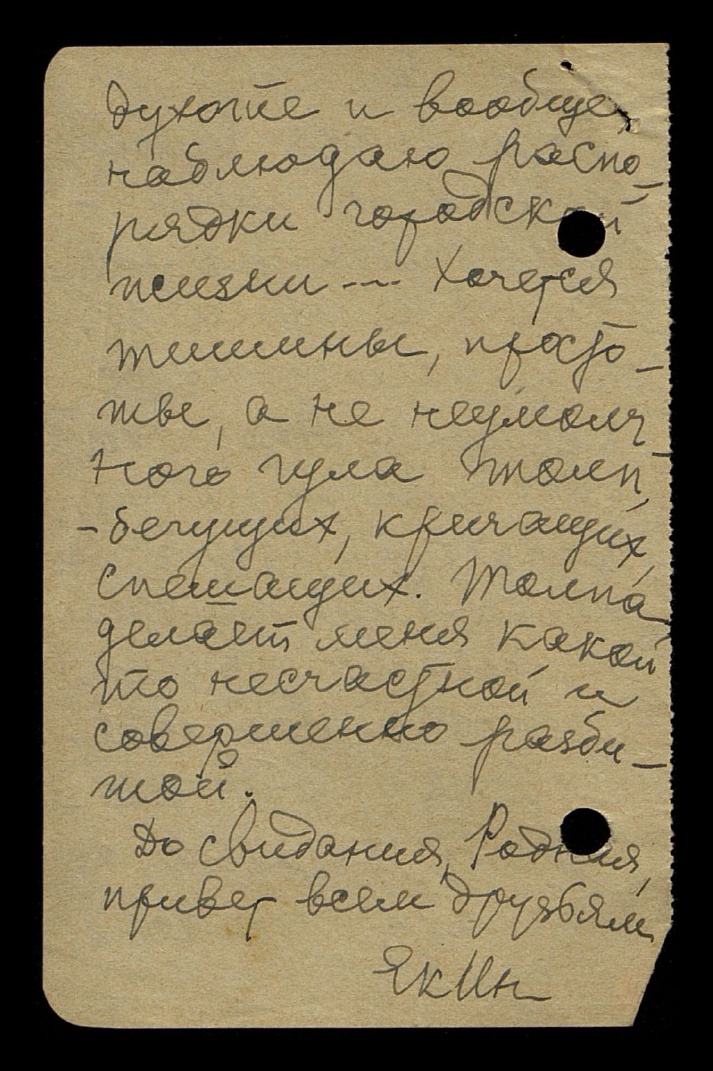 духоте и вообще
наблюдаю распо-
рядки городской
жизни --- Хочется
тишины, просто-
ты, а не неумолч
ного гула толп,
- бегущих, кричащих,
спешащих. Толпа
делает меня какой
то несчастной и
совершенно разби-
той.
До свидания, Родная,
привет всем друзьям